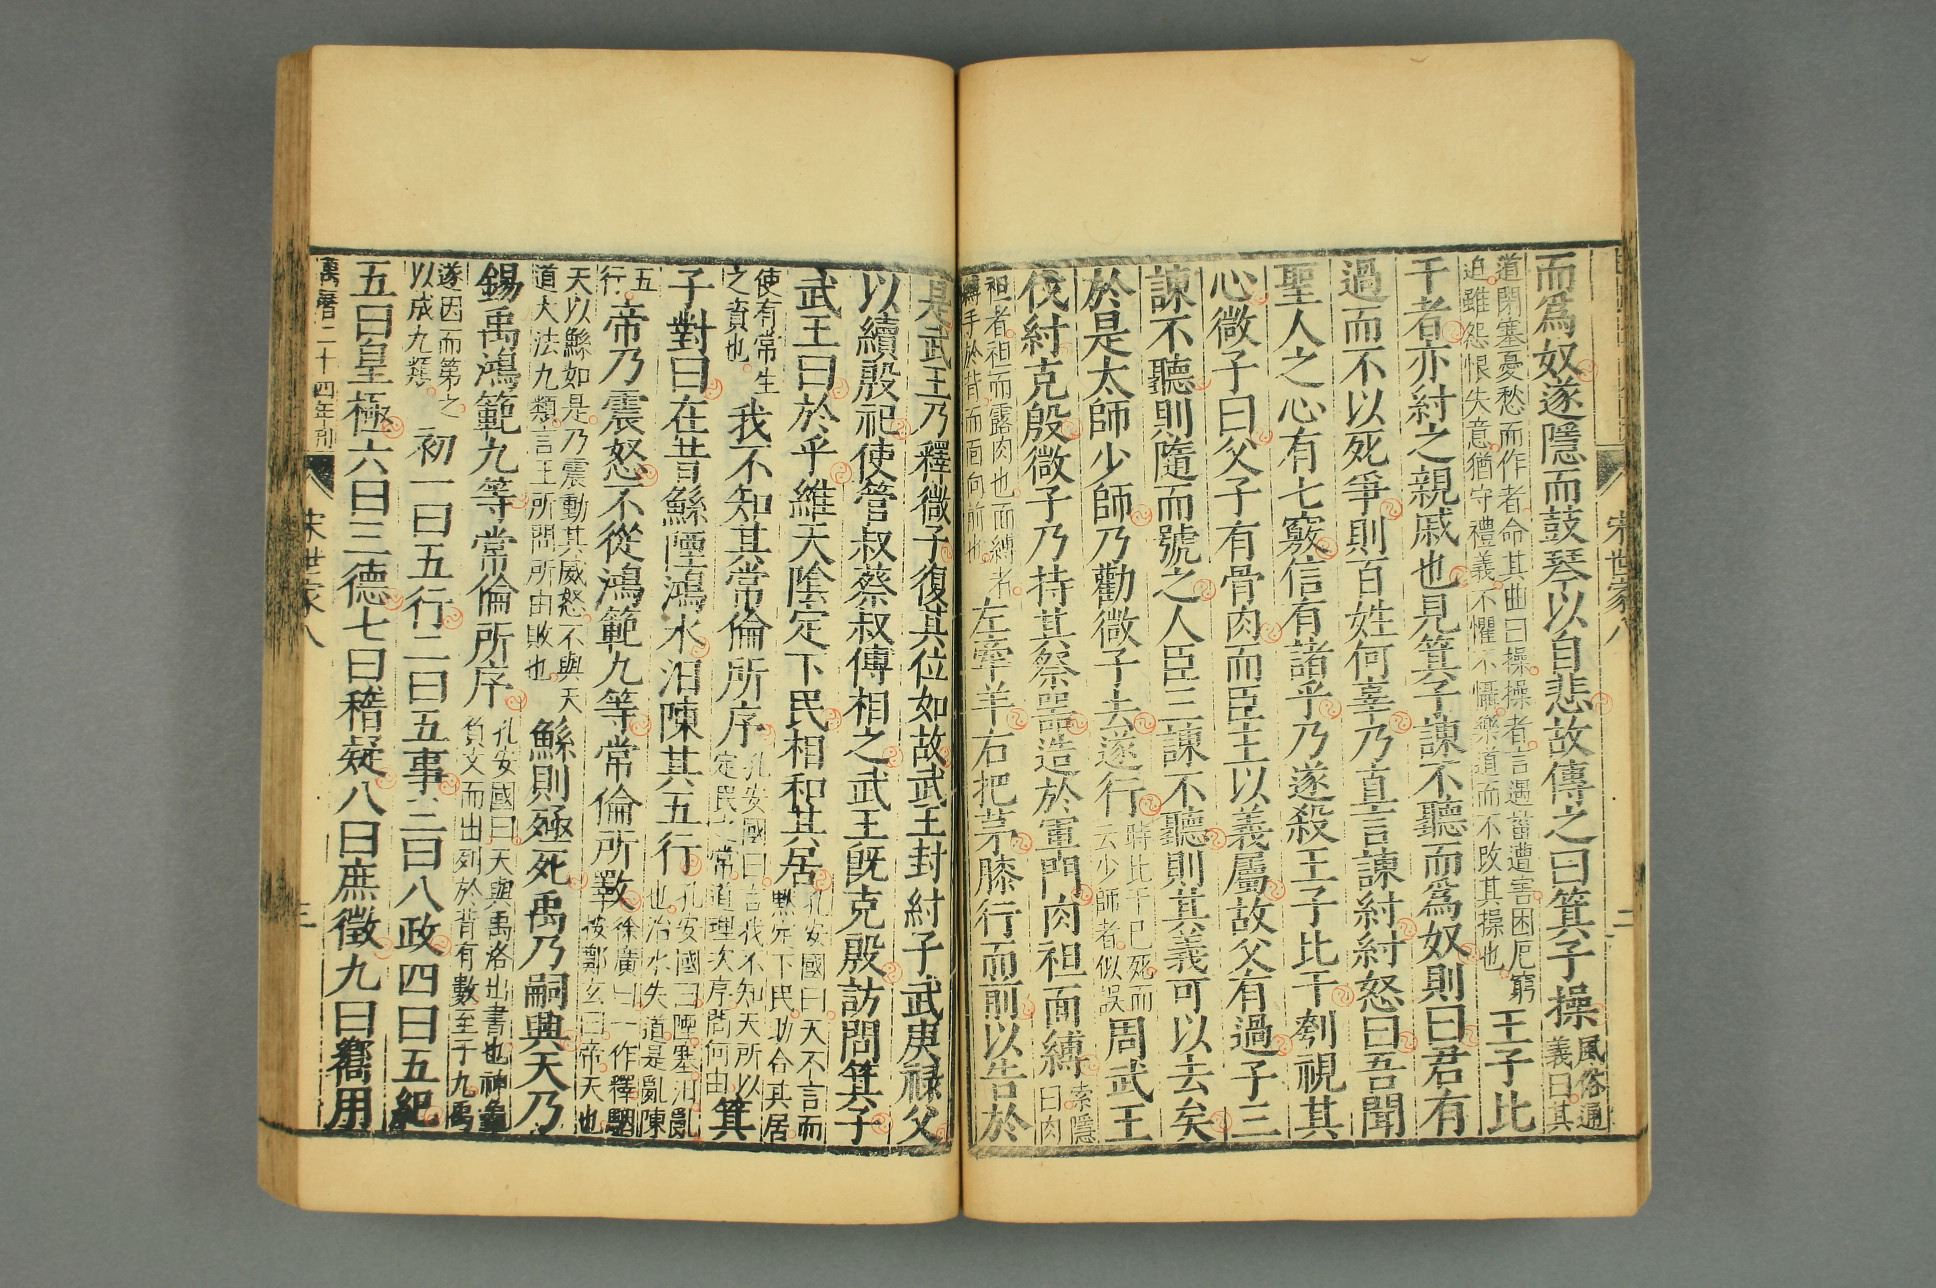 宋世家八 二
而爲奴遂隱而鼓琴以自悲故傳之曰箕子操
風俗通
義曰其
道閉塞憂愁而作者命其曲曰操操者言遇菑遭害困厄窮
迫雖怨恨失意猶守禮義不懼不懾樂道而不改其操也
王子比
干者亦紂之親戚也見箕子諫不聽而爲奴則曰君有
過而不以死爭則百姓何辜乃直言諫紂紂怒曰吾聞
聖人之心有七竅信有諸乎乃遂殺王子比干刳視其
心微子曰父子有骨肉而臣主以義屬故父有過子三
諫不聽則隨而號之人臣三諫不聽則其義可以去矣
於是太師少師乃勸微子去遂行
時比干已死而
云少師者似誤
周武王
伐紂克殷微子乃持其祭器造於軍門肉袒面縛
索隱
曰肉
袒者袒而露肉也而縛者
縛手於背而面向前也
左牽羊右把茅膝行而前以告於
是武王乃釋微子復其位如故武王封紂子武庚祿父
以續殷祀使管叔蔡叔傅相之武王旣克殷訪問箕子
武王曰於乎維天陰定下民相和其居
孔安國曰天不言而
默定下民助合其居
使有常生
之資也
我不知其常倫所序
孔安國曰言我不知天所以
定民之常道理次序問何由
箕
子對曰在昔鯀陻鴻水汨陳其五行
孔安國曰陻塞汨亂
也治水失道是亂陳
五
行
帝乃震怒不從鴻範九等常倫所斁
徐廣曰一作釋駰
按鄭玄曰帝天也
天以鯀如是乃震動其威怒不與天
道大法九類言王所問所由敗也
鯀則殛死禹乃嗣興天乃
錫禹鴻範九等常倫所序
孔安國曰天與禹洛出書也神龜
負文而出列於背有數至于九禹
遂因而第之
以成九類
初一曰五行二曰五事三曰八政四曰五紀
五曰皇極六曰三德七曰稽疑八曰庶徵九曰嚮用
萬曆二十四年刊 宋世家八 三